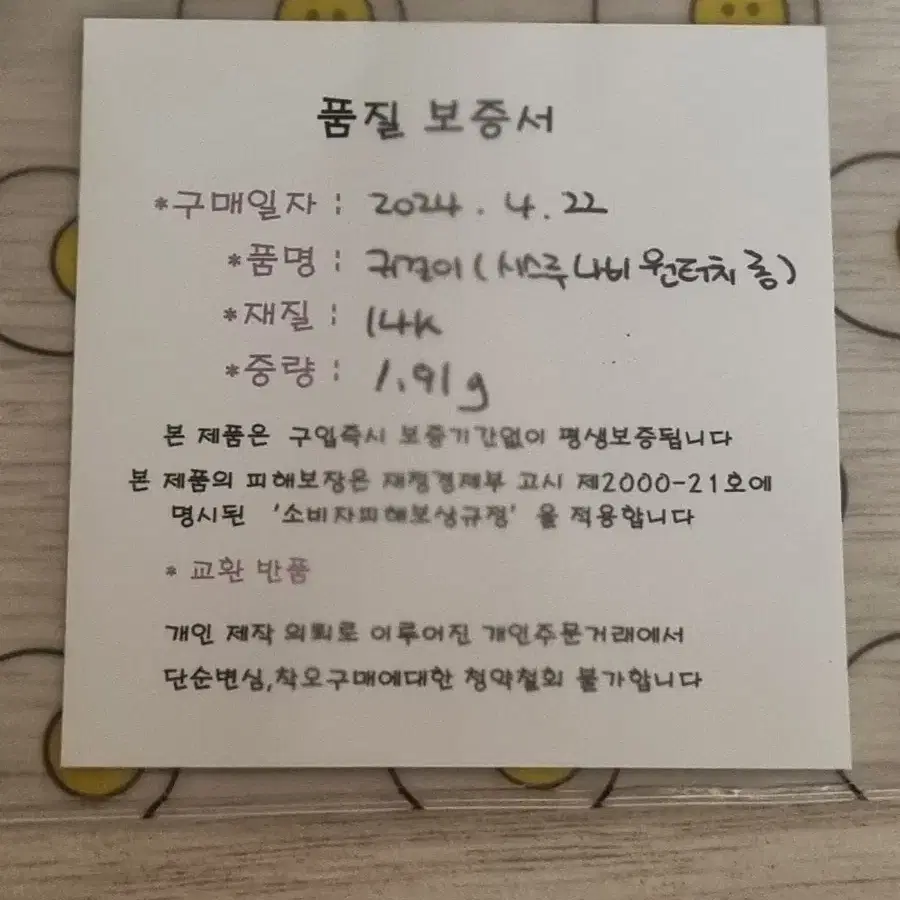 품질 보증서
*구매일자 : 2024 . 4 . 22
*품명 : 귀걸이 (시스루나비 원터치 롱)
*재질 : 14K
*중량 : 1.91g
본 제품은 구입즉시 보증기간없이 평생보증됩니다
본 제품의 피해보장은 재정경제부 고시 제2000-21호에
명시된 '소비자피해보상규정' 을 적용합니다
* 교환 반품
개인 제작 의뢰로 이루어진 개인주문거래에서
단순변심,착오구매에대한 청약철회 불가합니다